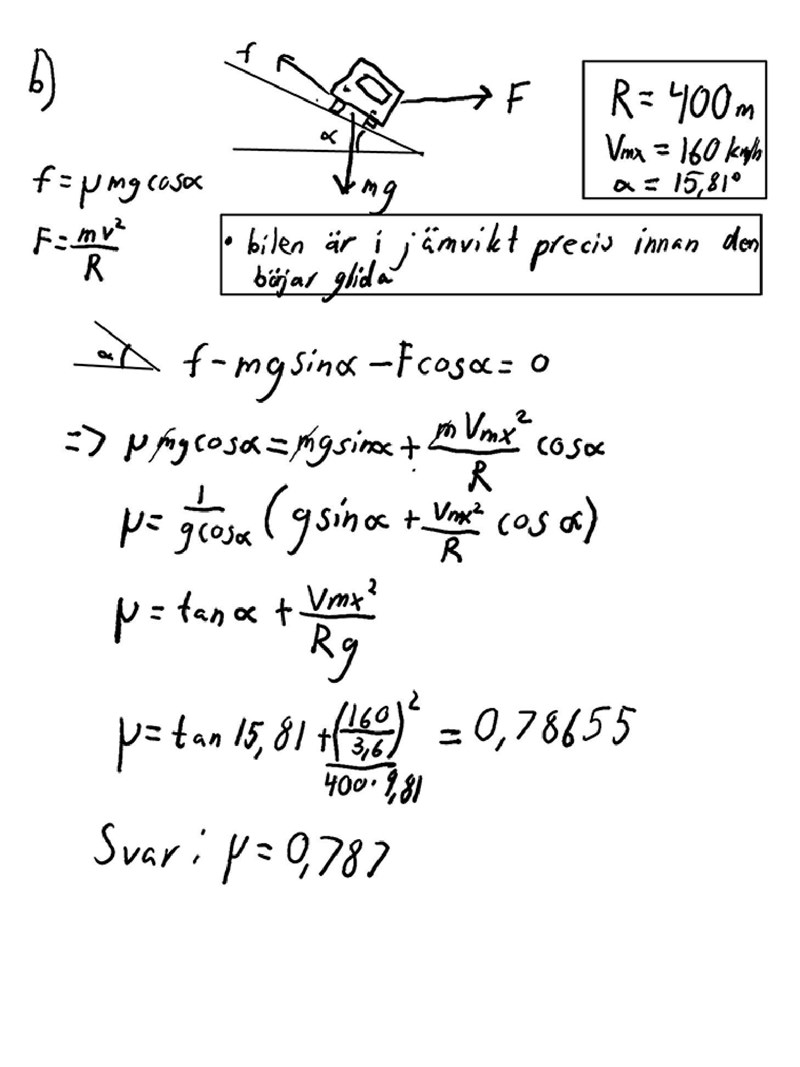 b)
f
F
α
mg
R = 400 m
Vmx = 160 km/h
α = 15,81°
f = μmgcosα
F = mv²/R
• bilen är i jämvikt precis innan den
börjar glida
α
f - mgsinα - Fcosα = 0
=> μmgcosα = mgsinα + mVmx²/R cosα
μ = 1/gcosα (gsinα + Vmx²/R cosα)
μ = tanα + Vmx²/Rg
μ = tan 15,81 + (160/3,6)²/400·9,81 = 0,78655
Svar: μ = 0,787